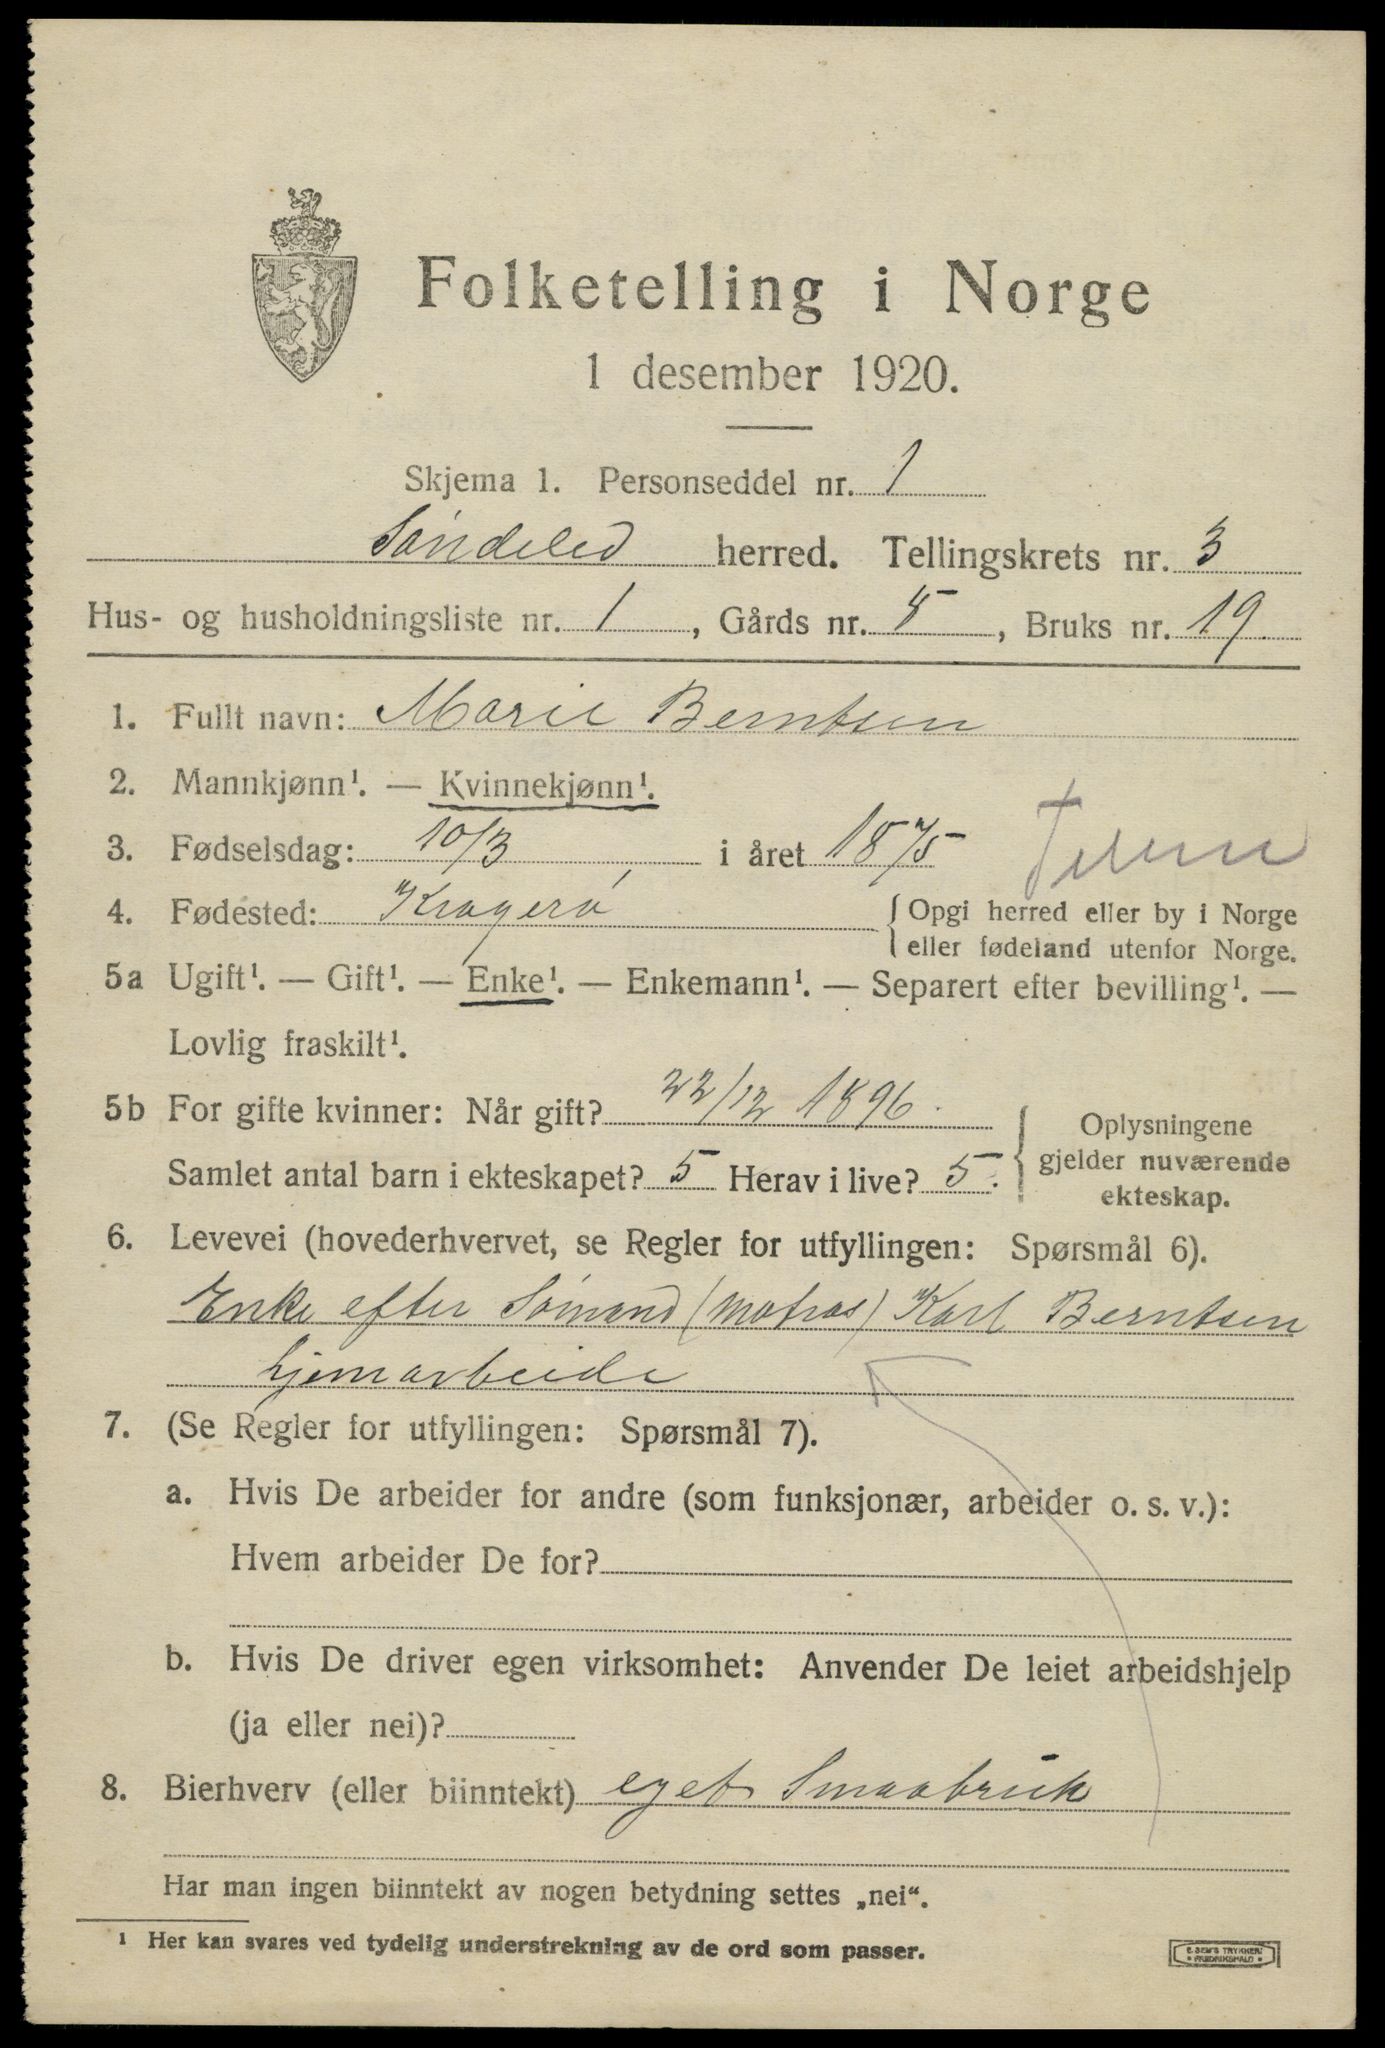 Folketelling i Norge
1 desember 1920.
Skjema 1. Personseddel nr. 1
Søndeled herred. Tellingskrets nr. 3
Hus- og husholdningsliste nr. 1, Gårds nr. 5, Bruks nr. 19
1. Fullt navn: Marie Berntsen
2. Mannkjønn¹. — Kvinnekjønn¹.
3. Fødselsdag: 10/3 i året 1875
Telem
4. Fødested: Kragerø {Opgi herred eller by i Norge
eller fødeland utenfor Norge.
5a Ugift¹. — Gift¹. — Enke¹. — Enkemann¹. — Separert efter bevilling¹. —
Lovlig fraskilt¹.
5b For gifte kvinner: Når gift? 22/12 1896.
Samlet antal barn i ekteskapet? 5 Herav i live? 5.
{Oplysningene
gjelder nuværende
ekteskap.
6. Levevei (hovederhvervet, se Regler for utfyllingen: Spørsmål 6).
Enke efter Sømand (Matros) Karl Berntsen
hjemarbeide
7. (Se Regler for utfyllingen: Spørsmål 7).
a. Hvis De arbeider for andre (som funksjonær, arbeider o. s. v.):
Hvem arbeider De for?
b. Hvis De driver egen virksomhet: Anvender De leiet arbeidshjelp
(ja eller nei)?
8. Bierhverv (eller biinntekt) eget Smaabruk
Har man ingen biinntekt av nogen betydning settes „nei“.
¹ Her kan svares ved tydelig understrekning av de ord som passer.
E. SEM'S TRYKKERI
• FREDRIKSHALD •